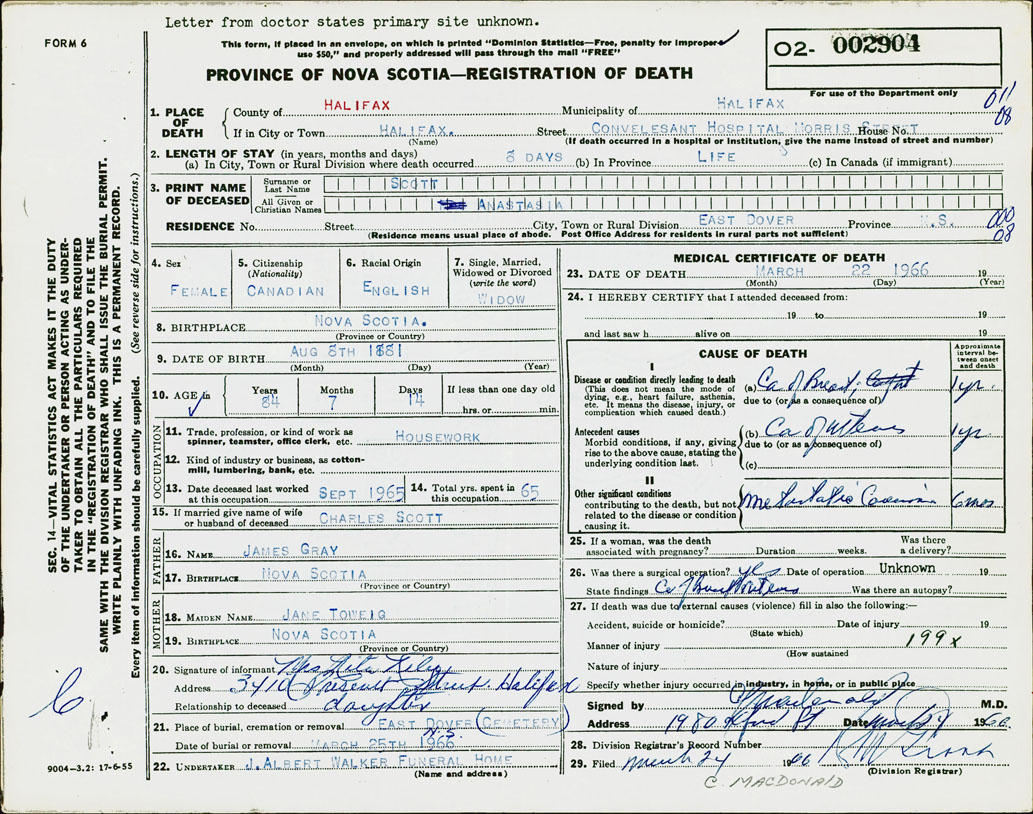 Letter from doctor states primary site unknown.
FORM 6
This form, if placed in an envelope, on which is printed "Dominion Statistics—Free, penalty for improper
use $50," and properly addressed will pass through the mail "FREE"
O2- 002904
For use of the Department only
PROVINCE OF NOVA SCOTIA—REGISTRATION OF DEATH
011
08
1. PLACE OF DEATH
County of HALIFAX Municipality of HALIFAX
If in City or Town HALIFAX. Street CONVELESANT HOSPITAL MORRIS STREET House No.
(Name) (If death occurred in a hospital or institution, give the name instead of street and number)
2. LENGTH OF STAY (in years, months and days)
(a) In City, Town or Rural Division where death occurred 8 DAYS (b) In Province LIFE (c) In Canada (if immigrant)
3. PRINT NAME OF DECEASED
Surname or Last Name SCOTT
All Given or Christian Names ANASTASIA
RESIDENCE No. Street City, Town or Rural Division EAST DOVER Province N.S.
(Residence means usual place of abode. Post Office Address for residents in rural parts not sufficient)
000
08
4. Sex FEMALE
5. Citizenship (Nationality) CANADIAN
6. Racial Origin ENGLISH
7. Single, Married, Widowed or Divorced (write the word) WIDOW
8. BIRTHPLACE NOVA SCOTIA.
(Province or Country)
9. DATE OF BIRTH AUG 8TH 1881
(Month) (Day) (Year)
10. AGE in Years 84 Months 7 Days 14 If less than one day old hrs. or min.
OCCUPATION
11. Trade, profession, or kind of work as spinner, teamster, office clerk, etc. HOUSEWORK
12. Kind of industry or business, as cotton-mill, lumbering, bank, etc.
13. Date deceased last worked at this occupation SEPT 1965
14. Total yrs. spent in this occupation 65
15. If married give name of wife or husband of deceased CHARLES SCOTT
FATHER
16. NAME JAMES GRAY
17. BIRTHPLACE NOVA SCOTIA
(Province or Country)
MOTHER
18. MAIDEN NAME JANE TOWEIG
19. BIRTHPLACE NOVA SCOTIA
(Province or Country)
20. Signature of informant Mrs Rita
Address 3410 Street Halifax
Relationship to deceased daughter
21. Place of burial, cremation or removal EAST DOVER (CEMETERY)
N.S.
Date of burial or removal MARCH 25TH 1966
22. UNDERTAKER J. ALBERT WALKER FUNERAL HOME
(Name and address)
MEDICAL CERTIFICATE OF DEATH
23. DATE OF DEATH MARCH 22 1966 19
(Month) (Day) (Year)
24. I HEREBY CERTIFY that I attended deceased from:
19 to 19
and last saw h alive on 19
CAUSE OF DEATH
Approximate interval between onset and death
I
Disease or condition directly leading to death
(This does not mean the mode of dying, e.g., heart failure, asthenia, etc. It means the disease, injury, or complication which caused death.)
(a) Ca of Breast 1 yr.
due to (or as a consequence of)
Antecedent causes
Morbid conditions, if any, giving rise to the above cause, stating the underlying condition last.
(b) Ca of uterus 1 yr
due to (or as a consequence of)
(c)
II
Other significant conditions
contributing to the death, but not related to the disease or condition causing it.
Metastatic Carcinoma 6 mos
25. If a woman, was the death associated with pregnancy? Duration weeks. Was there a delivery?
26. Was there a surgical operation? yes Date of operation Unknown 19
State findings Ca of Breast Uterus Was there an autopsy?
27. If death was due to external causes (violence) fill in also the following:—
Accident, suicide or homicide? Date of injury 19
(State which)
Manner of injury 199x
(How sustained)
Nature of injury
Specify whether injury occurred in industry, in home, or in public place
Signed by M.D.
Address 1980 St Date 24 1966.
28. Division Registrar's Record Number
29. Filed March 24 1966
(Division Registrar)
C. MACDONALD
SEC. 14—VITAL STATISTICS ACT MAKES IT THE DUTY
OF THE UNDERTAKER OR PERSON ACTING AS UNDER-
TAKER TO OBTAIN ALL THE PARTICULARS REQUIRED
IN THE "REGISTRATION OF DEATH" AND TO FILE THE
SAME WITH THE DIVISION REGISTRAR WHO SHALL ISSUE THE BURIAL PERMIT.
WRITE PLAINLY WITH UNFADING INK. THIS IS A PERMANENT RECORD.
Every item of information should be carefully supplied. (See reverse side for instructions.)
6
9004-3.2: 17-6-55